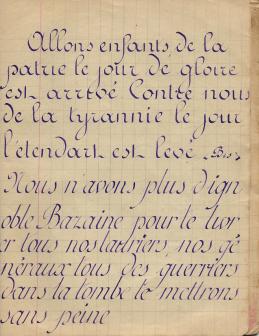 Allons enfants de la
patrie le jour de gloire
est arrivé Contre nous
de la tyrannie le jour
l'étendart est levé Bis
Nous n'avons plus d'ign
oble Bazaine pour le livr
er tous nos lauriers, nos gé
néraux tous des guerriers
dans la tombe le mettrons
sans peine